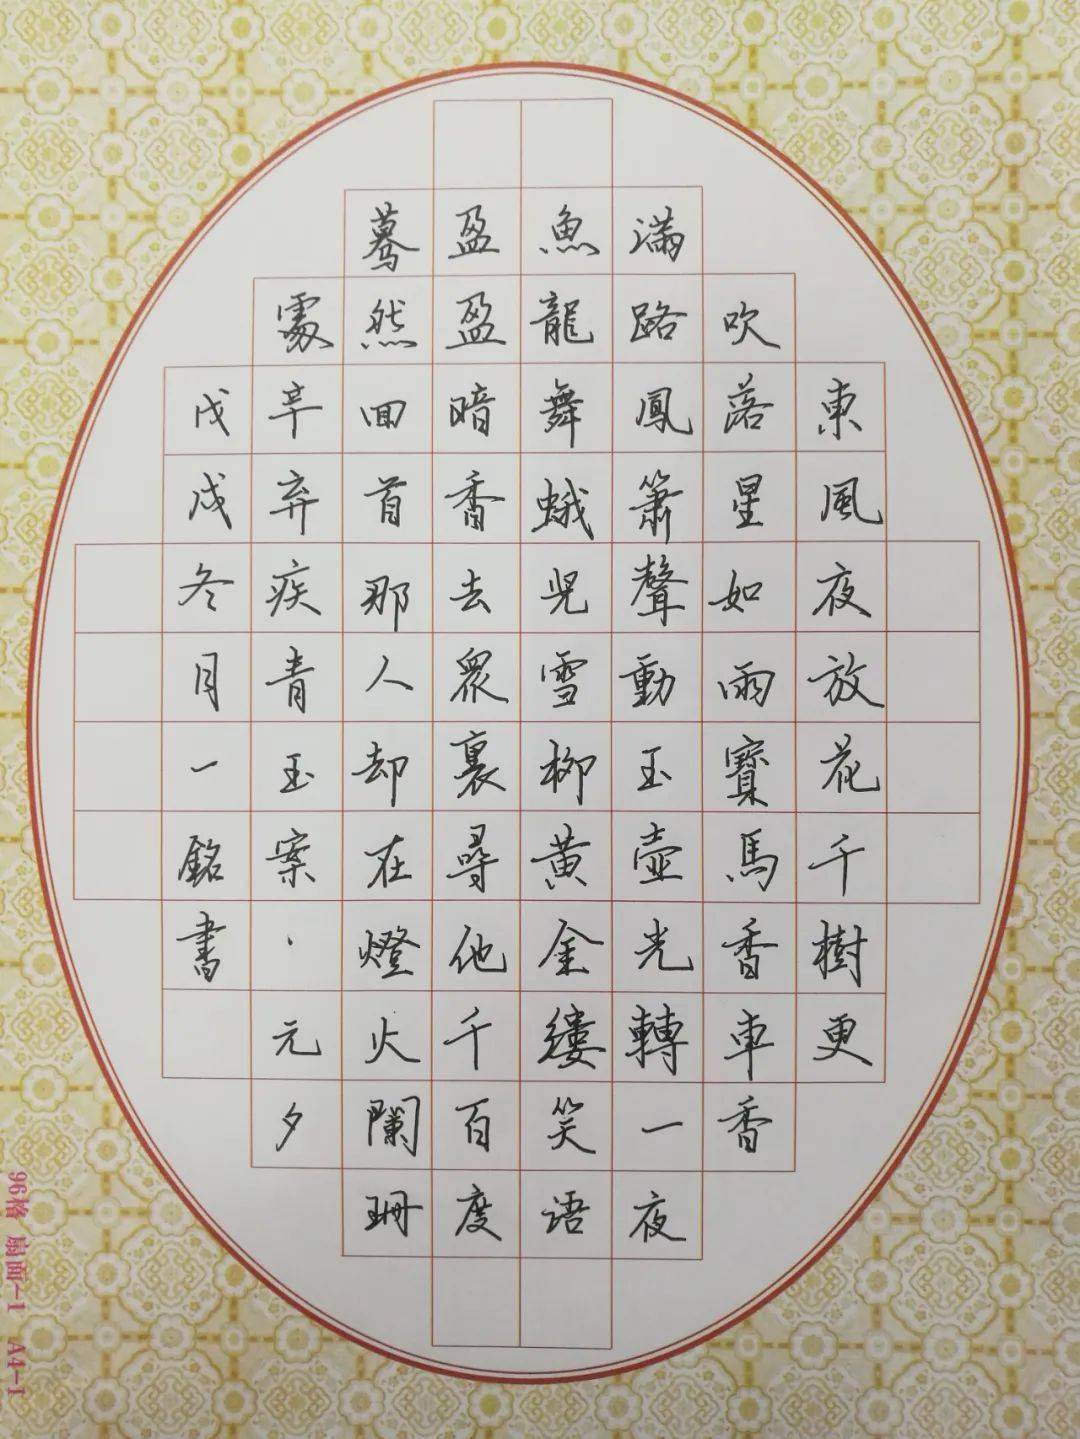 東風夜放花千樹更
吹落星如雨寶馬香車香
滿路鳳簫聲動玉壺光轉一夜
魚龍舞蛾兒雪柳黄金縷笑語
盈盈暗香去眾裏尋他千百度
驀然囬首那人却在燈火闌珊
處辛弃疾青玉案·元夕
戊戌冬月一銘書
96格 扇面-1 A4-1